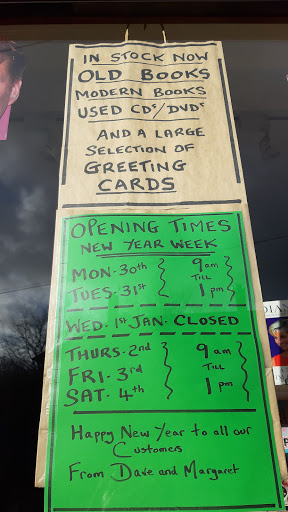 IN STOCK NOW
OLD BOOKS
MODERN BOOKS
USED CDs/DVDs
AND A LARGE
SELECTION OF
GREETING
CARDS
OPENING TIMES
NEW YEAR WEEK
MON. 30th 9am
TILL
TUES. 31st 1pm
WED. 1st JAN. CLOSED
THURS. 2nd 9am
FRI. 3rd TILL
SAT. 4th 1pm
Happy New Year to all our
Customers
From Dave and Margaret